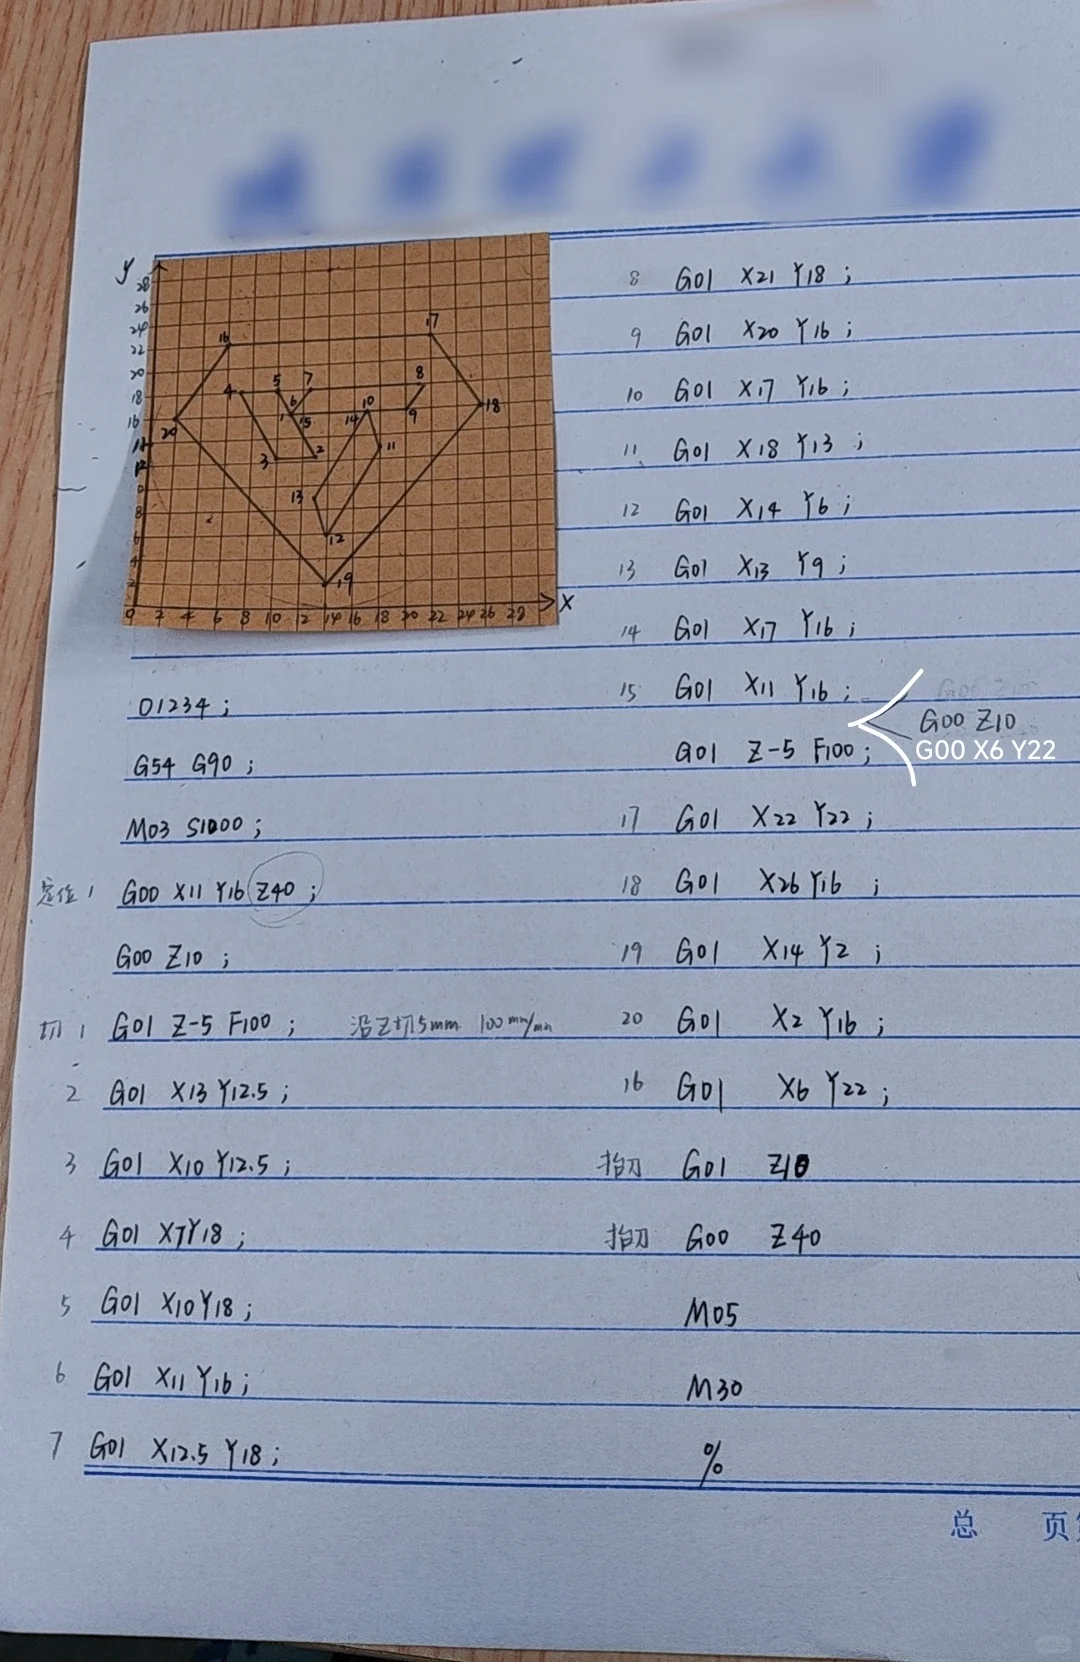 y
28
26
24
22
20
18
16
12
8
6
4
2
0 2 4 6 8 10 12 14 16 18 20 22 24 26 28 X
16 17
4 5 7 8
1 6 15 14 10 9 18
20
3 2 11
13
12
19
O1234 ;
G54 G90 ;
M03 S1000 ;
定位 1 G00 X11 Y16 Z40 ;
G00 Z10 ;
切 1 G01 Z-5 F100 ; 沿Z切5mm 100mm/min
2 G01 X13 Y12.5 ;
3 G01 X10 Y12.5 ;
4 G01 X7 Y18 ;
5 G01 X10 Y18 ;
6 G01 X11 Y16 ;
7 G01 X12.5 Y18 ;
8 G01 X21 Y18 ;
9 G01 X20 Y16 ;
10 G01 X17 Y16 ;
11 G01 X18 Y13 ;
12 G01 X14 Y6 ;
13 G01 X13 Y9 ;
14 G01 X17 Y16 ;
15 G01 X11 Y16 ;
G00 Z10
G00 X6 Y22
G01 Z-5 F100 ;
17 G01 X22 Y22 ;
18 G01 X26 Y16 ;
19 G01 X14 Y2 ;
20 G01 X2 Y16 ;
16 G01 X6 Y22 ;
抬刀 G01 Z10
抬刀 G00 Z40
M05
M30
%
总 页